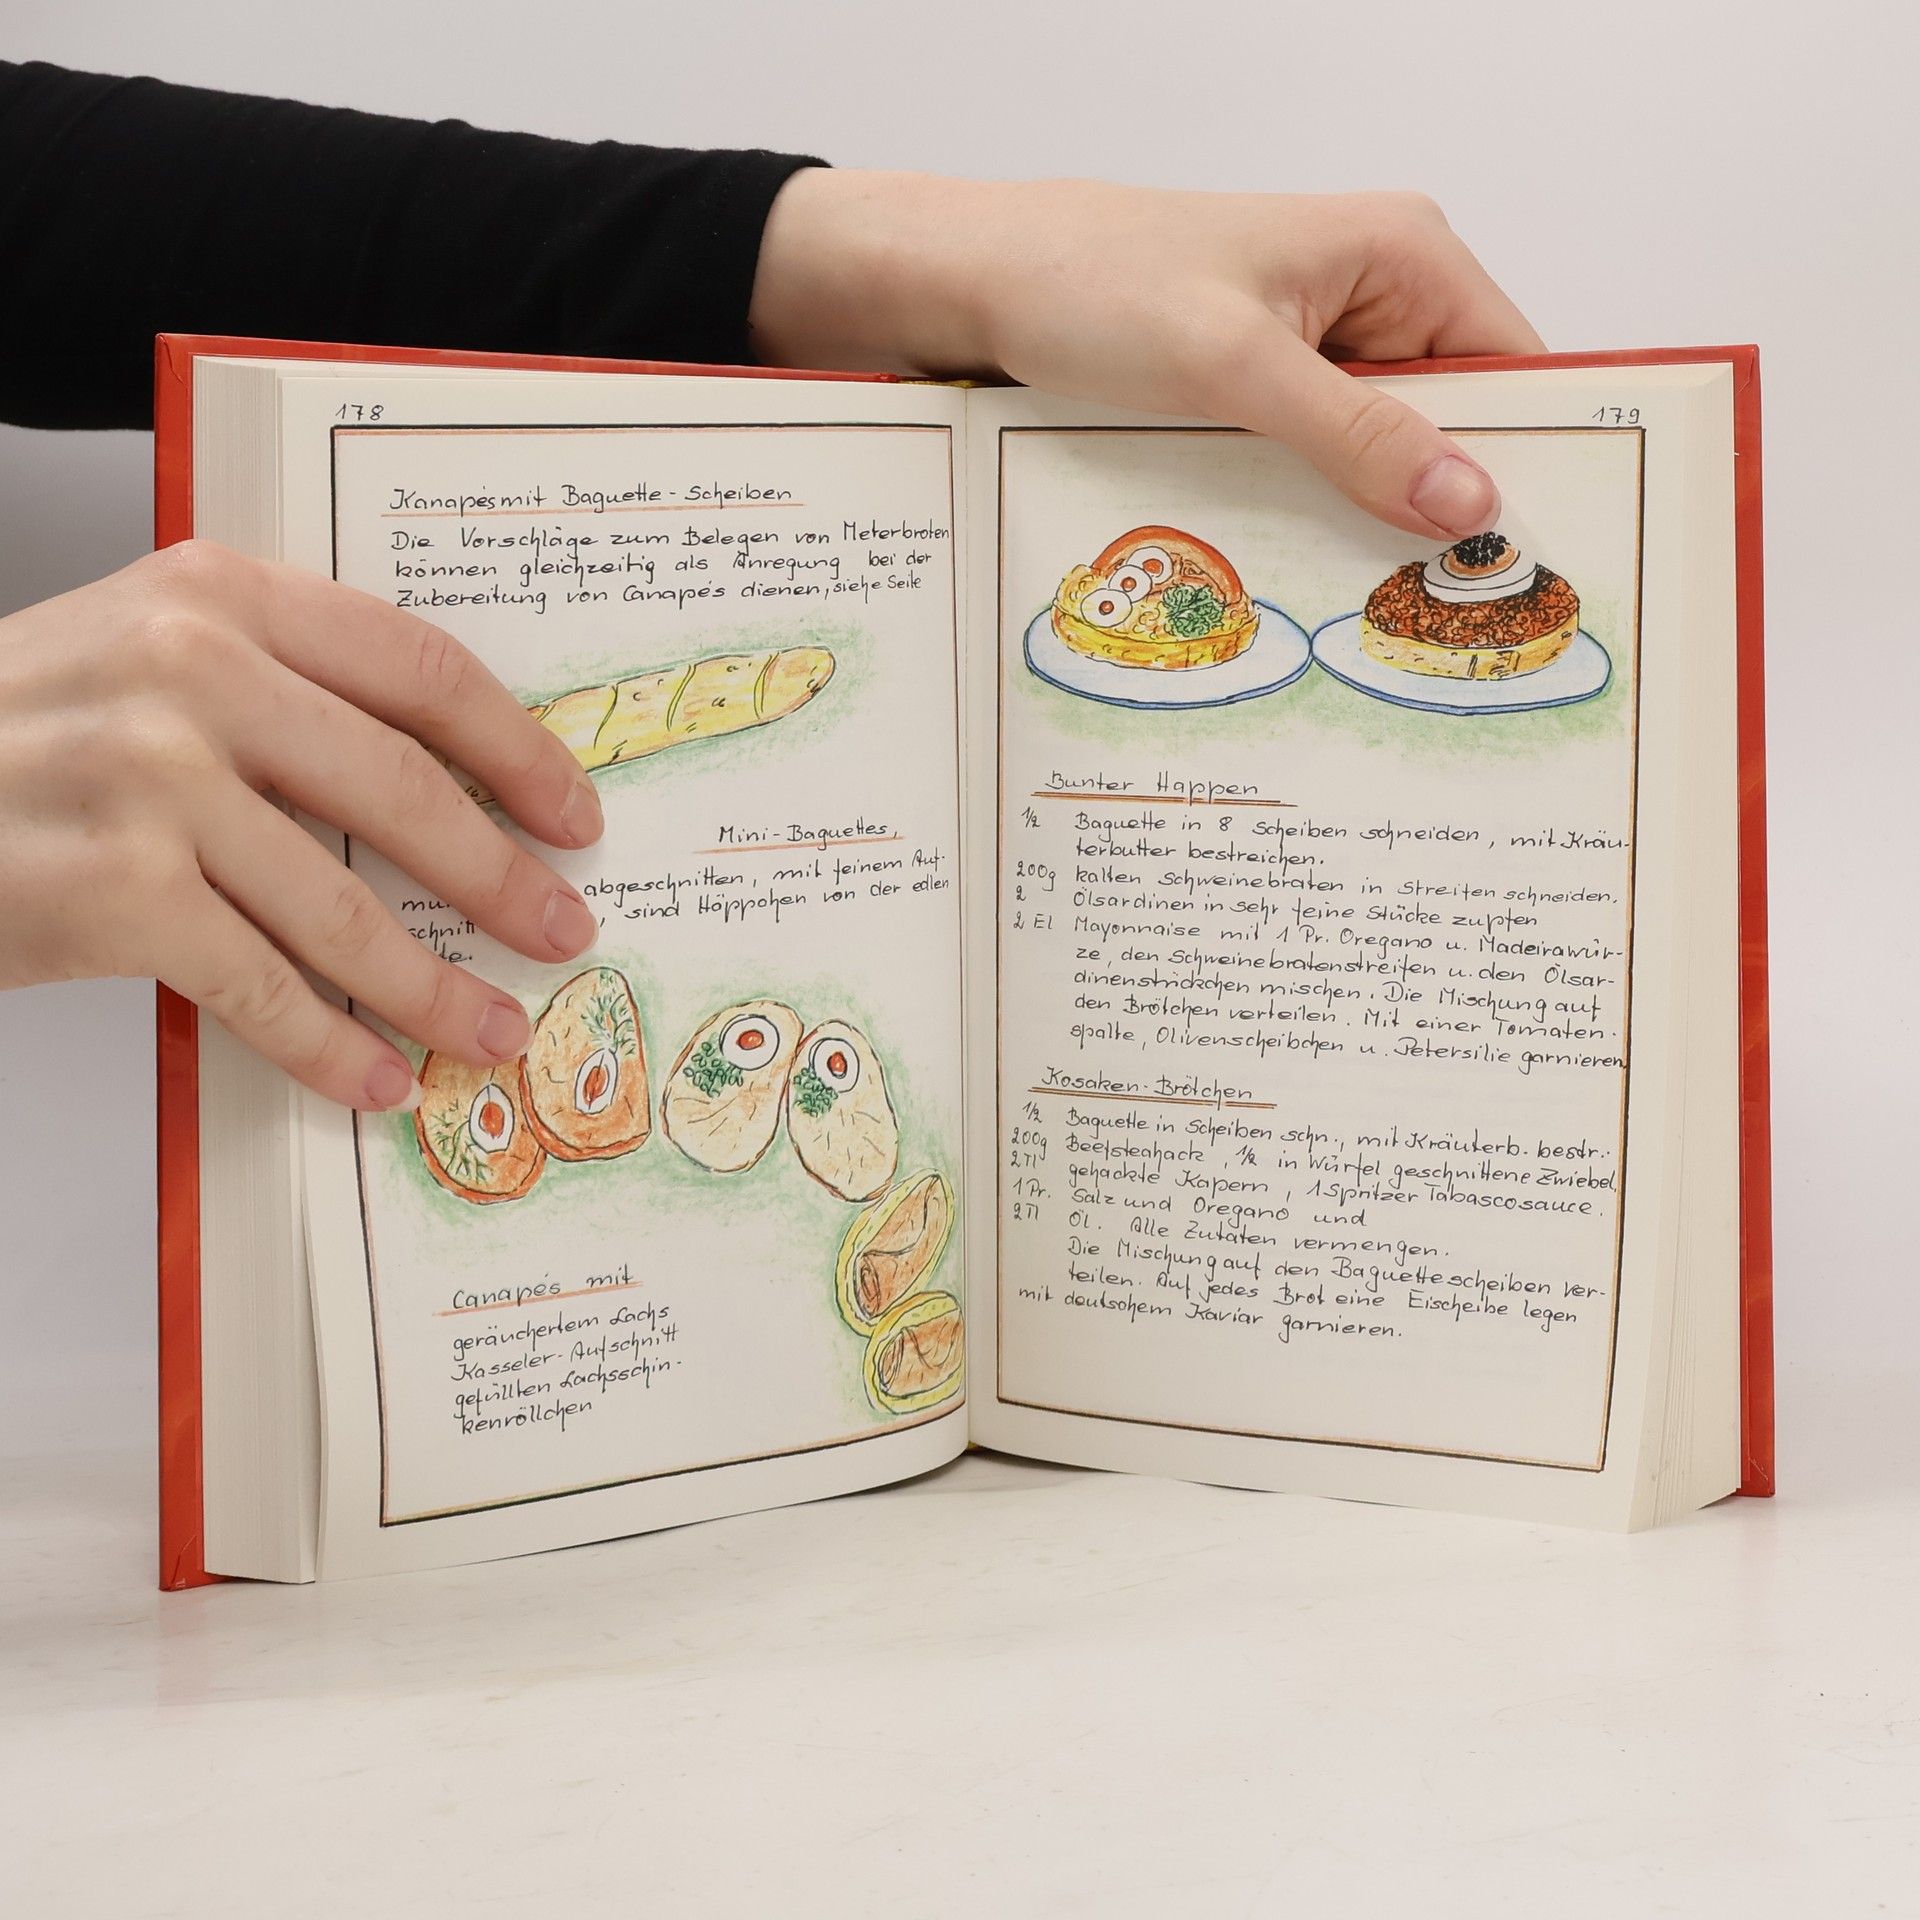 178
Kanapés mit Baguette-Scheiben
Die Vorschläge zum Belegen von Meterbroten
können gleichzeitig als Anregung bei der
Zubereitung von Canapés dienen, siehe Seite
Mini-Baguettes,
abgeschnitten, mit feinem Auf-
schnitt , sind Häppchen von der edlen
Canapés mit
geräuchertem Lachs
Kasseler-Aufschnitt
gefüllten Lachsschin-
kenröllchen
179
Bunter Happen
1/2 Baguette in 8 Scheiben schneiden, mit Kräu-
terbutter bestreichen.
200g kalten Schweinebraten in Streifen schneiden.
2 Ölsardinen in sehr feine Stücke zupfen
2 El Mayonnaise mit 1 Pr. Oregano u. Madeirawür-
ze, den Schweinebratenstreifen u. den Ölsar-
dinenstückchen mischen. Die Mischung auf
den Brötchen verteilen. Mit einer Tomaten-
spalte, Olivenscheibchen u. Petersilie garnieren
Kosaken-Brötchen
1/2 Baguette in Scheiben schn., mit Kräuterb. bestr..
200g Beefsteahack, 1/2 in Würfel geschnittene Zwiebel,
2 Tl gehackte Kapern, 1 Spritzer Tabascosauce.
1 Pr. Salz und Oregano und
2 Tl Öl. Alle Zutaten vermengen.
Die Mischung auf den Baguettescheiben ver-
teilen. Auf jedes Brot eine Eischeibe legen
mit deutschem Kaviar garnieren.